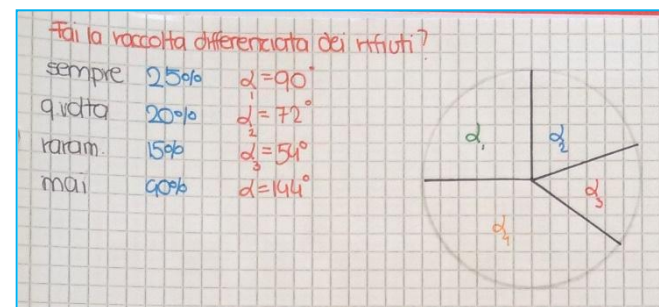 Fai la raccolta differenziata dei rifiuti?
sempre 25% α₁=90°
q.volta 20% α₂=72°
raram. 15% α₃=54°
mai 40% α=144°
α₁ α₂
α₃
α₄